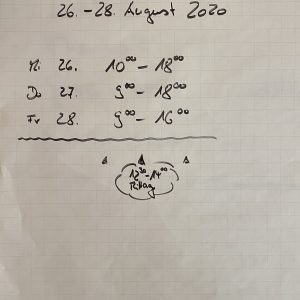 26. - 28. August 2020
Mi 26. 10⁰⁰ - 18⁰⁰
Do 27. 9⁰⁰ - 18⁰⁰
Fr 28. 9⁰⁰ - 16⁰⁰
12³⁰ - 14⁰⁰
Mittag